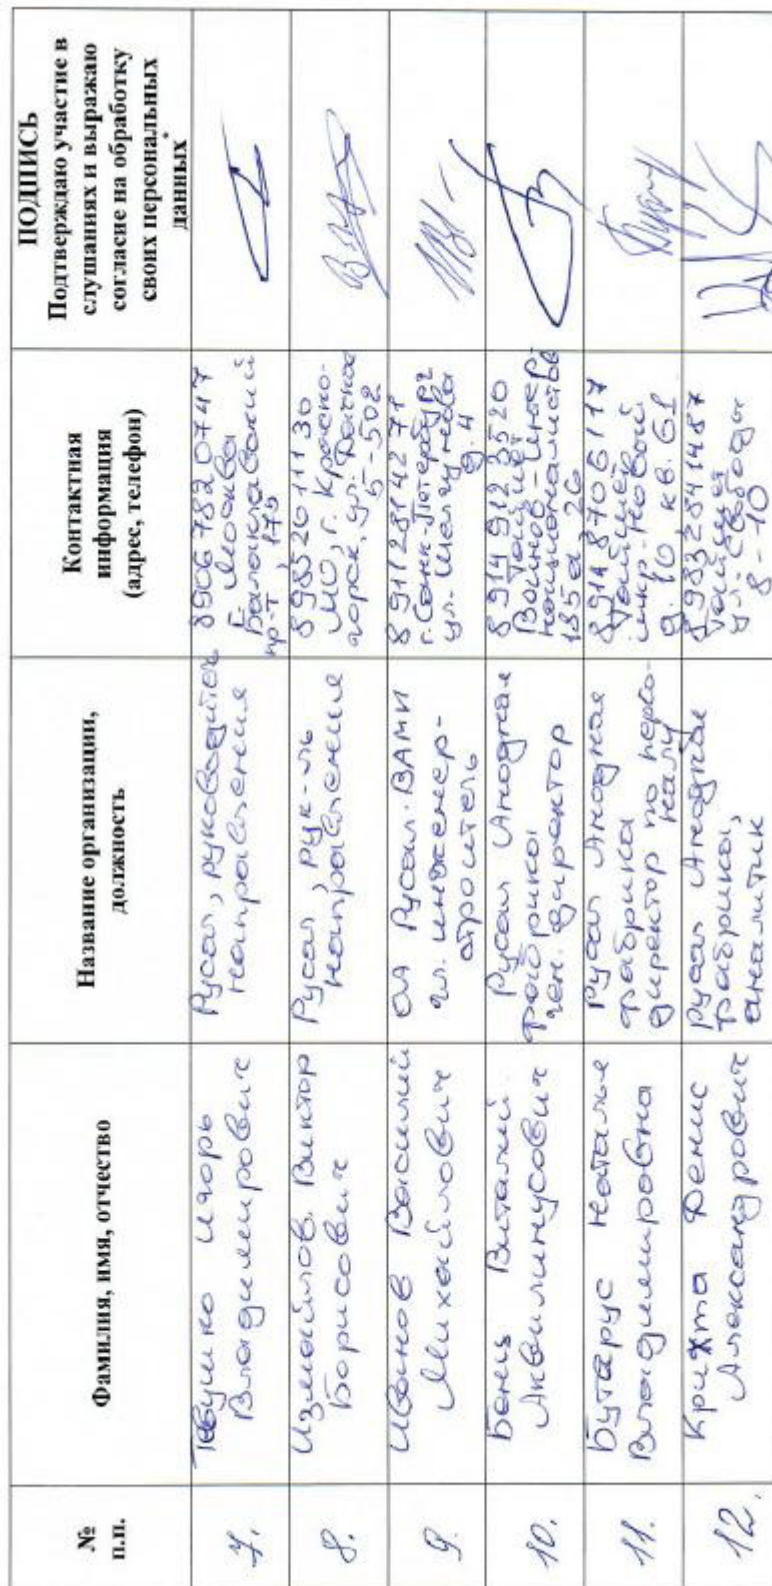 №
п.п.
Фамилия, имя, отчество
Название организации,
должность
Контактная
информация
(адрес, телефон)
ПОДПИСЬ
Подтверждаю участие в
слушаниях и выражаю
согласие на обработку
своих персональных
данных*
7.
Тевушко Игорь
Владимирович
Русал, руководитель
направления
8906 782 0747
г. Москва
Балаклавский
пр-т, 175
8.
Измайлов Виктор
Борисович
Русал, рук-ль
направления
8 98520 111 30
МО, г. Красно-
горск, ул. Дачная
5-502
9.
Иванов Василий
Михайлович
Русал ВАМИ
гл. инженер-
строитель
8 911 281 42 71
г. Санкт-Петербург
ул. Шелгунова
д. 4
10.
Бенц Виталий
Аквилинусович
Русал Анодная
фабрика
ген. директор
8 914 912 3520
Тайшет
Воинов-Интер-
националистов
185а 26
11.
Бутарус Наталья
Владимировна
Русал Анодная
фабрика
директор по персо-
налу
8914 870 6117
Тайшет
мкр-Новый
д. 10 кв. 61
12.
Крихта Денис
Александрович
Русал Анодная
фабрика,
аналитик
8 983 2841487
Тайшет
ул. Свободы
8-10